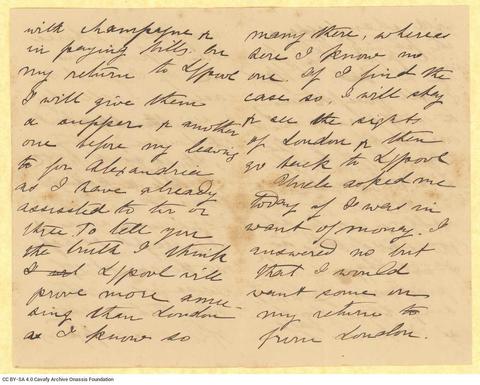 with champagne &
in paying bills. On
my return to L/pool
I will give them
a supper & another
one before my leaving
to for Alexandria
as I have already
assisted to tw or
three. To tell you
the truth I think
I L/pool will
prove more amu
sing than London
as I know so
many there, whereas
here I know no
one. If I find the
case so, I will stay
& see the sights
of London & then
go back to L/pool
Uncle asked me
today if I was in
want of money. I
answered no but
that I would
want some on
my return to
from London.
CC BY-SA 4.0 Cavafy Archive Onassis Foundation